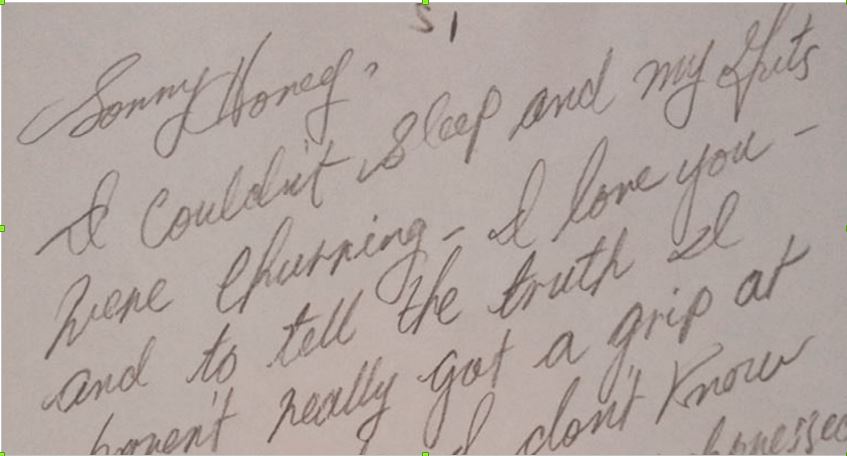 Sonny Honey,
I couldn't sleep and my Guts
were churning - I love you -
and to tell the truth I
haven't really got a grip at
I don't know